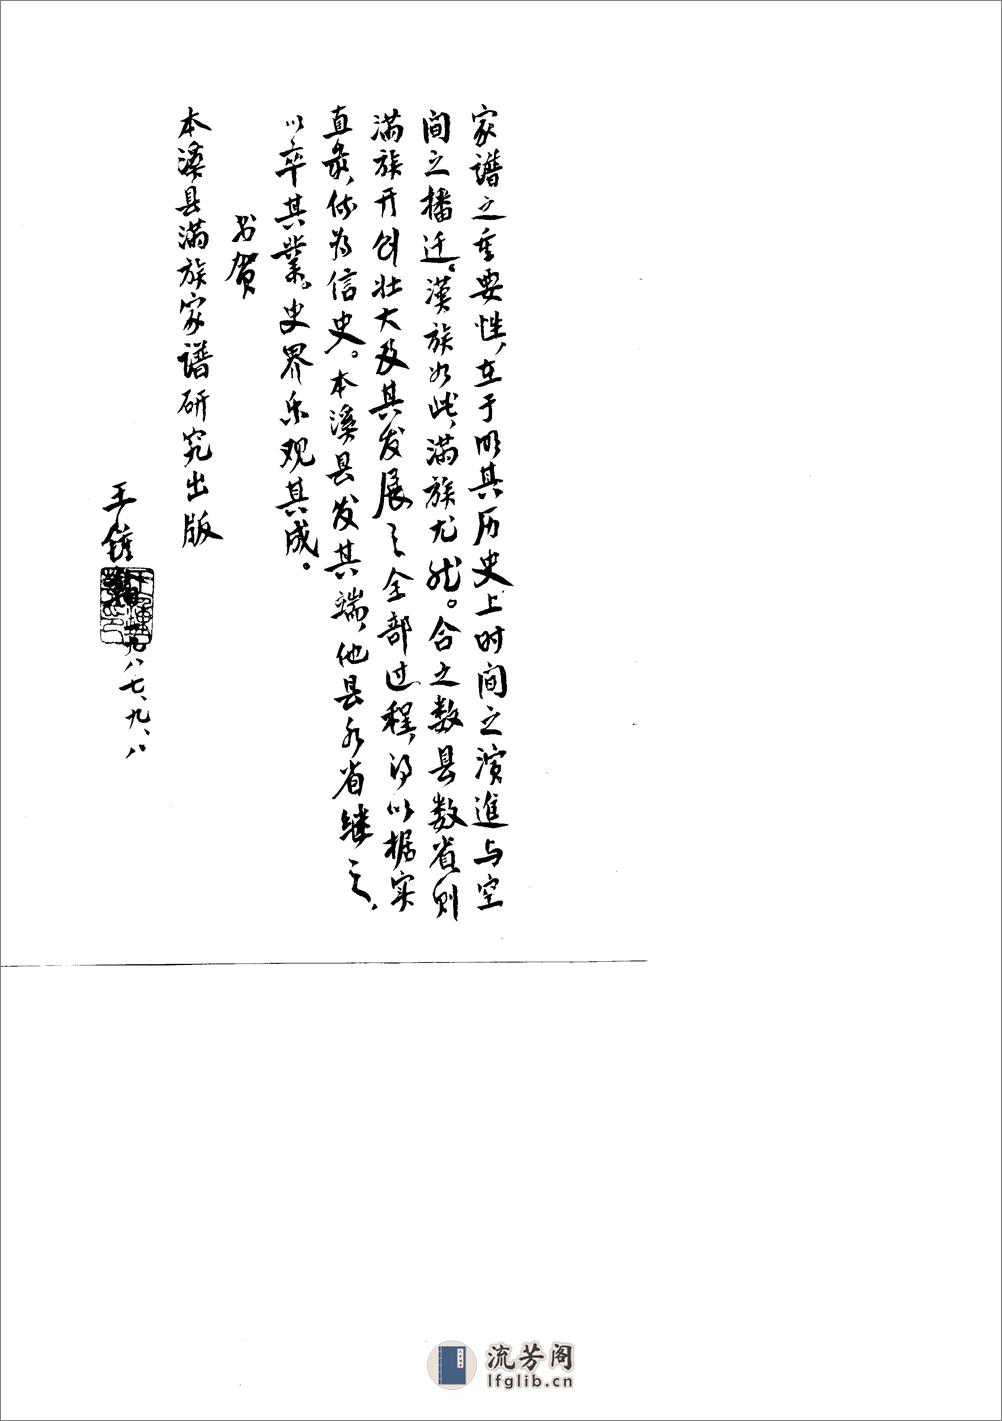 家谱之重要性,在于明其历史上时间之演進与空
间之播迁。漢族如此,满族尤然。合之数县数省,则
满族开创壮大及其发展之全部过程,得以据实
直录,作为信史。本溪县发其端,他县外省继之,
以卒其业。史界乐观其成。
书贺
本溪县满族家谱研究出版
王鍾翰
一九八七、九、八
流芳阁
lfglib.cn